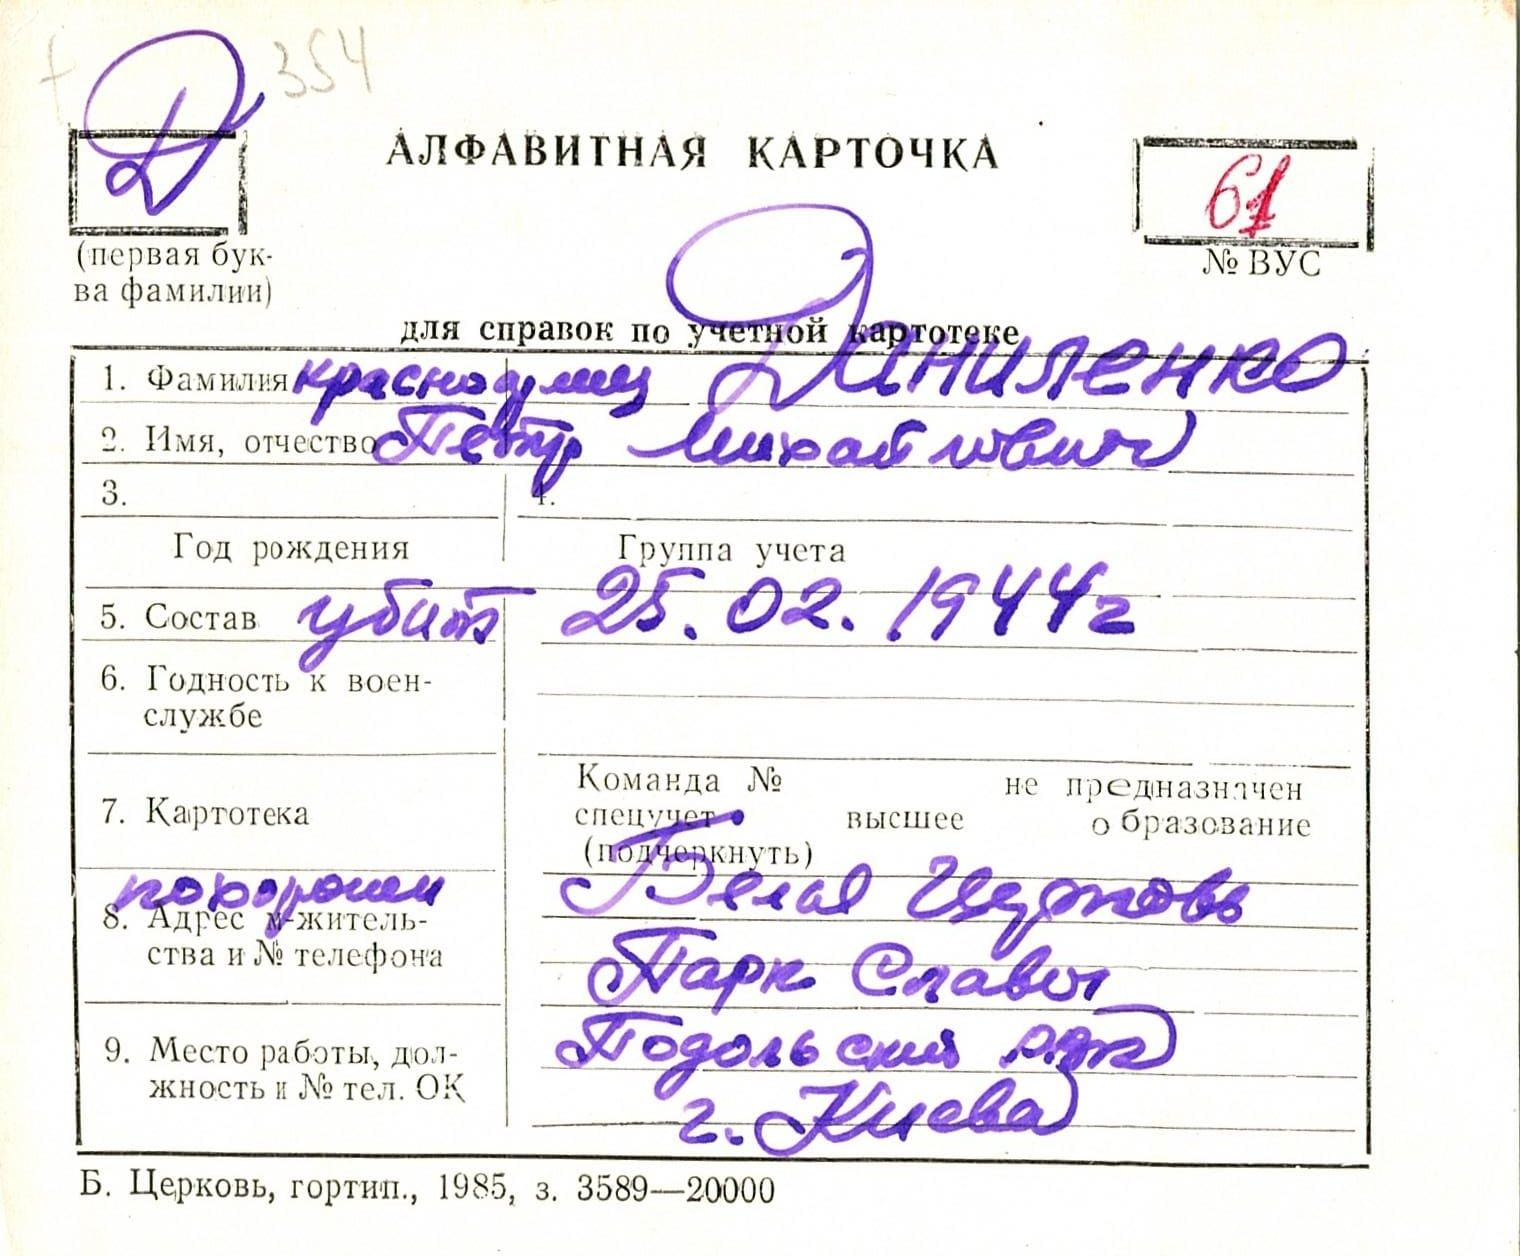 354
Д
АЛФАВИТНАЯ КАРТОЧКА
61
(первая бук-
ва фамилии)
№ ВУС
для справок по учетной картотеке
1. Фамилия красноармеец Даниленко
2. Имя, отчество Петр Михайлович
3. 4.
Год рождения Группа учета
5. Состав убит 25.02.1944г
6. Годность к воен-
службе
Команда № не предназначен
7. Картотека спецучет высшее образование
(подчеркнуть)
похоронен Белая Церковь
8. Адрес м-житель-
ства и № телефона Парк Славы
9. Место работы, дол- Подольский РВК
жность и № тел. ОК г. Киева
Б. Церковь, гортип., 1985, з. 3589—20000